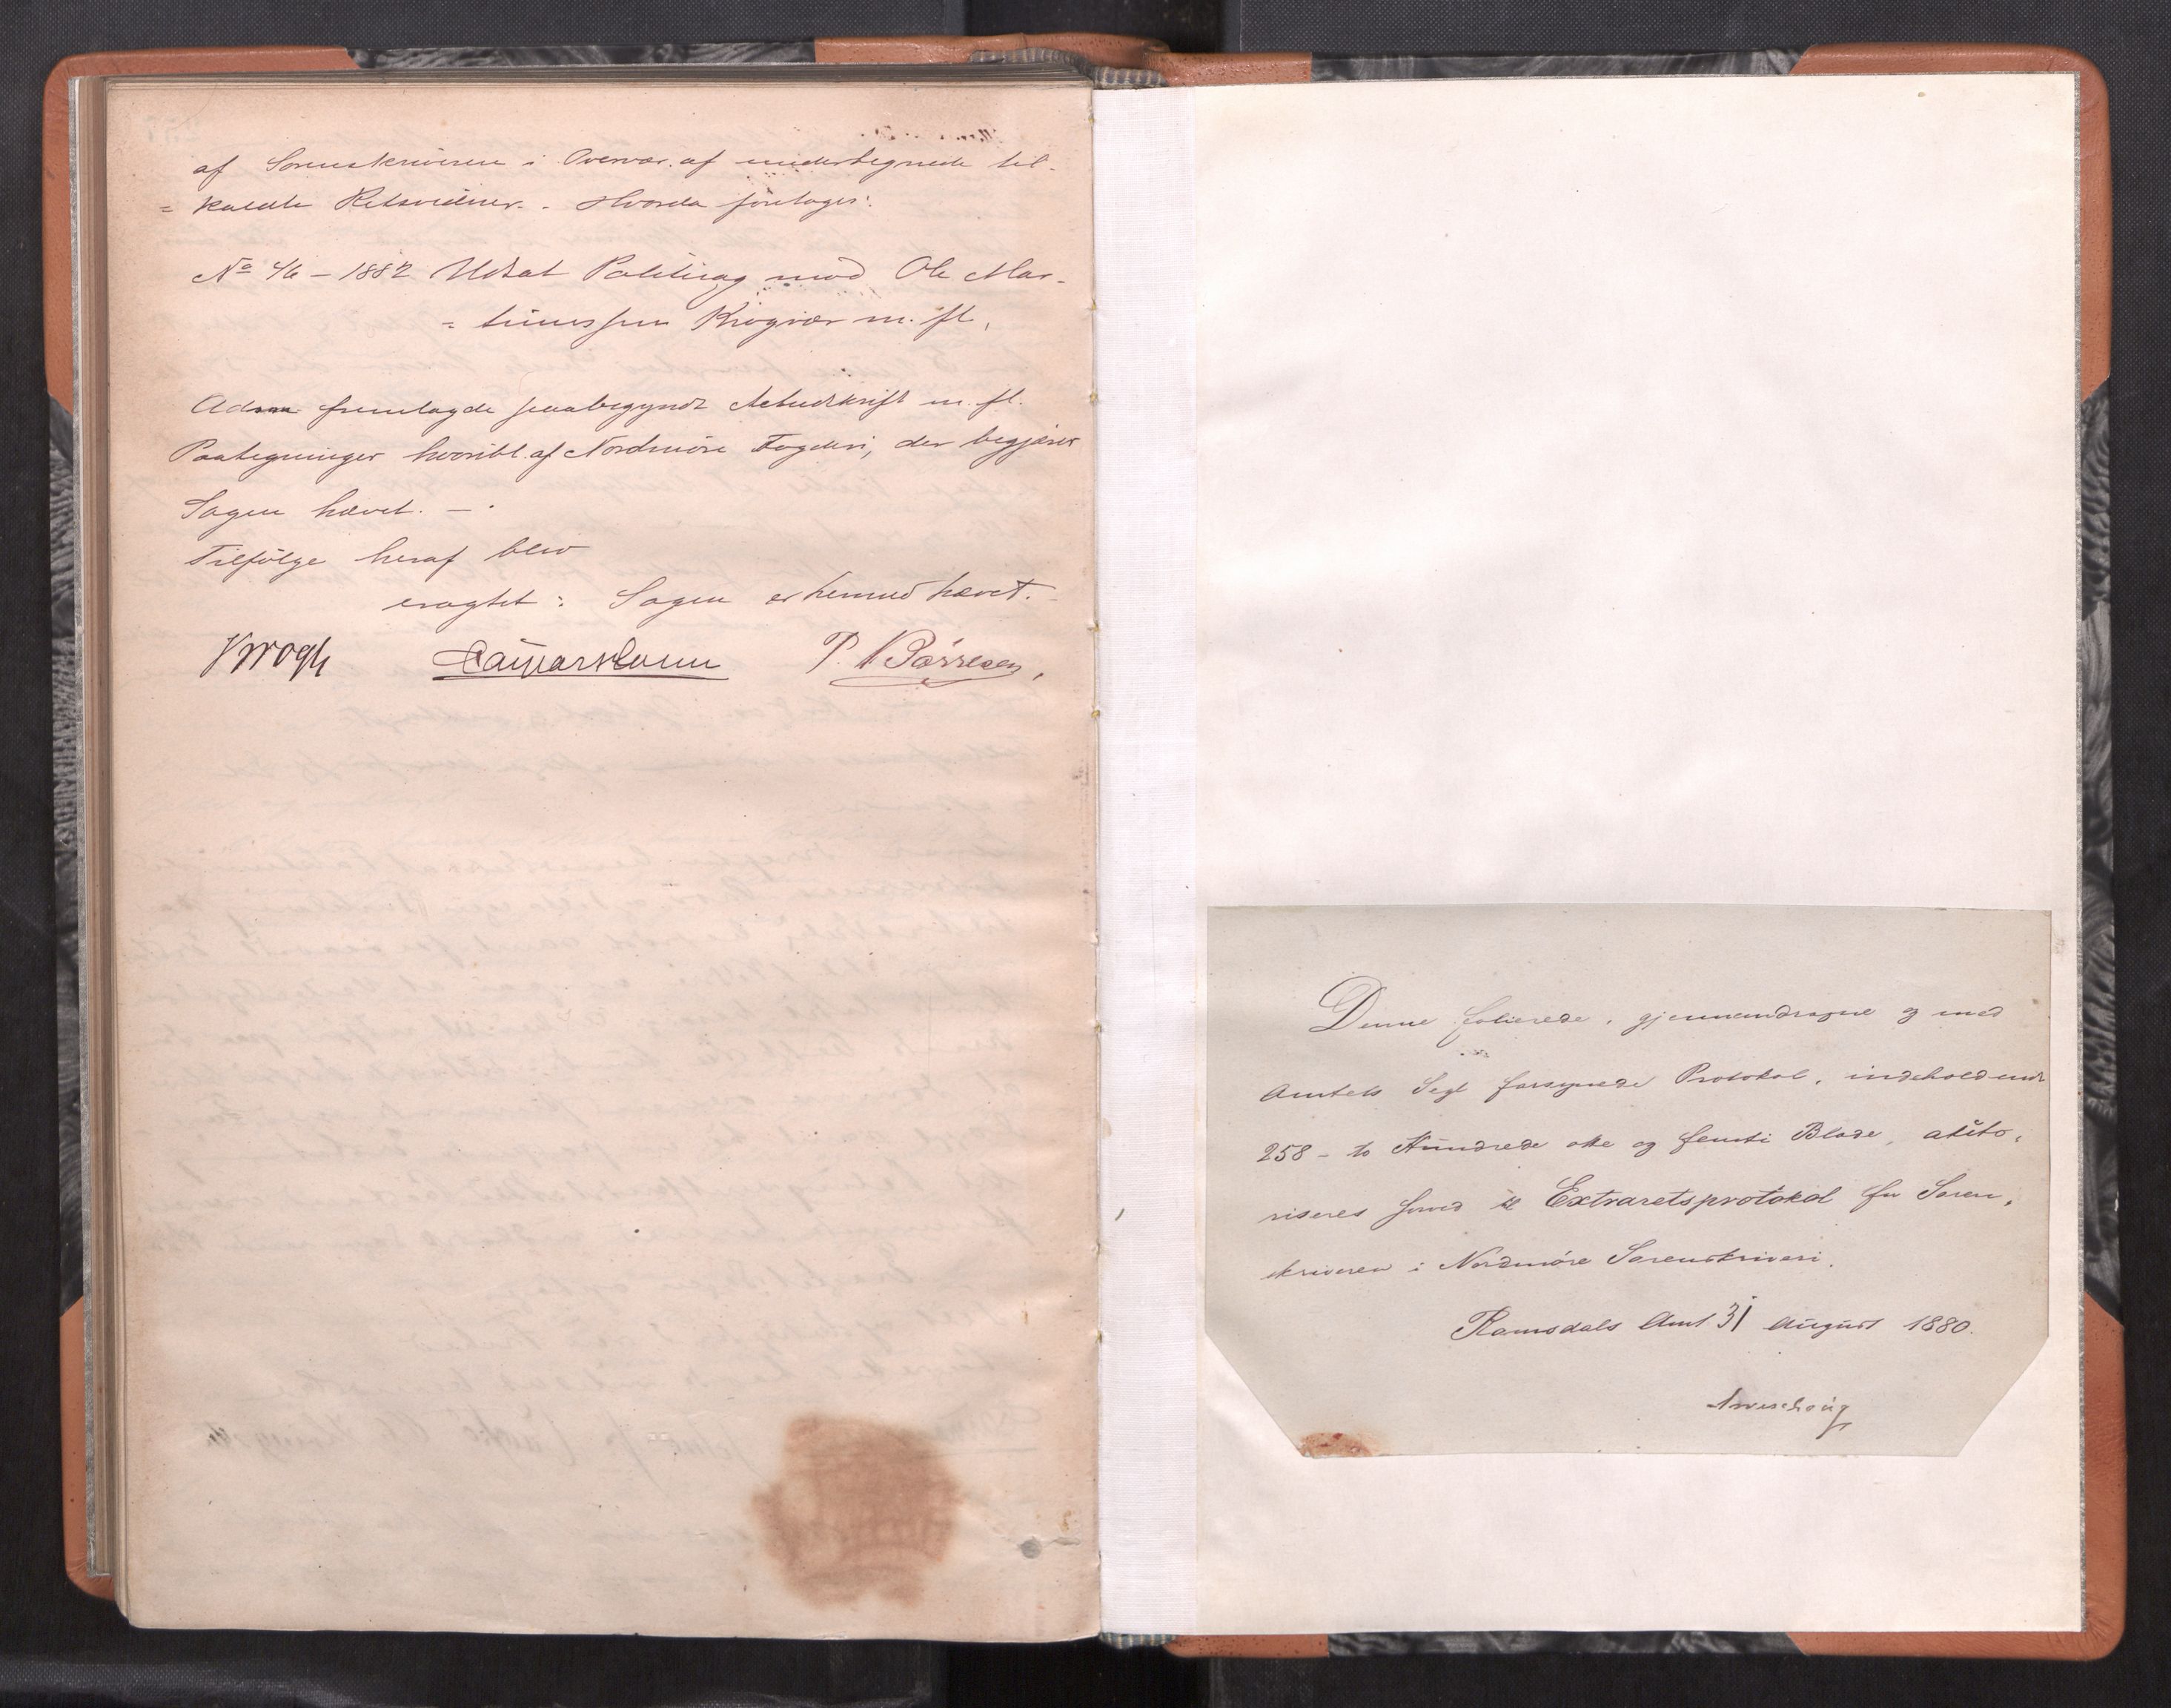 af Sorenskriveren i Overvær. af undertegnede til-
= kaldte Retsvidner. - Hvorda foretoges:
No 46 - 1882 Udsat Politisag mod Ole Mar-
= tinussen Krogvær m. fl.
Adm fremlagde paabegyndt Actudskrift m. fl.
Paategninger hvoribl. af Nordmöre Fogderi, der begjærer
Sagen hævet. -
Tilfölge heraf blev
eragtet: Sagen er hermed hævet.
Krogh P. Börresen,
Denne folierede, gjennemdragne og med
Amtets Segl forsynede Protokol, indeholdende
258 - to Hundrede otte og femti Blade, auto-
riseres herved til Extraretsprotokol for Soren-
skriveren i Nordmöre Sorenskriveri.
Romsdals Amt 31 August 1880.